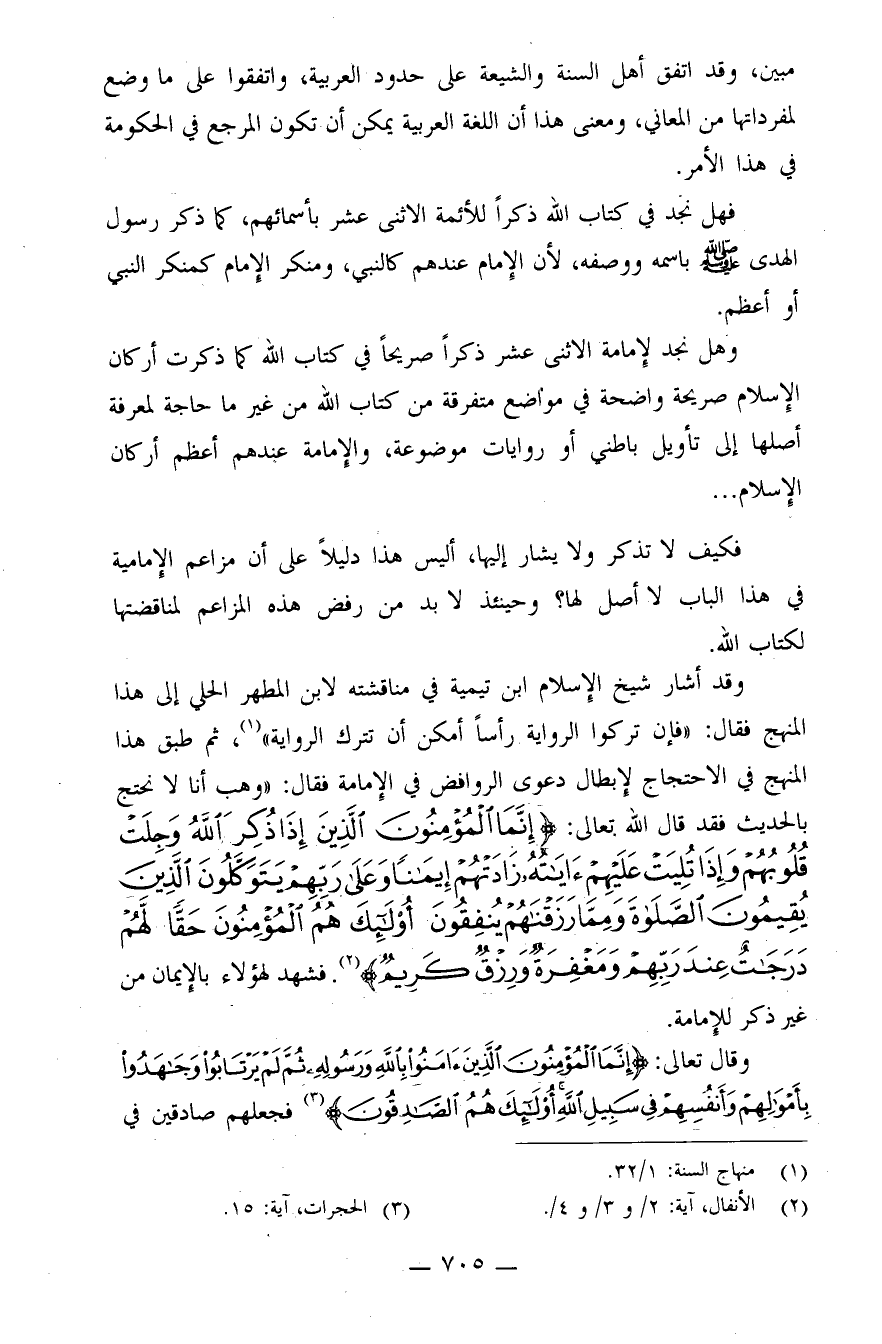 مبين، وقد اتفق أهل السنة والشيعة على حدود العربية، واتفقوا على ما وضع
لمفرداتها من المعاني، ومعنى هذا أن اللغة العربية يمكن أن تكون المرجع في الحكومة
في هذا الأمر.
فهل نجد في كتاب الله ذكراً للأئمة الاثنى عشر بأسمائهم، كما ذكر رسول
الهدى ﷺ باسمه ووصفه، لأن الإمام عندهم كالنبي، ومنكر الإمام كمنكر النبي
أو أعظم.
وهل نجد لإمامة الاثنى عشر ذكراً صريحاً في كتاب الله كما ذكرت أركان
الإسلام صريحة واضحة في مواضع متفرقة من كتاب الله من غير ما حاجة لمعرفة
أصلها إلى تأويل باطني أو روايات موضوعة، والإمامة عندهم أعظم أركان
الإسلام...
فكيف لا تذكر ولا يشار إليها، أليس هذا دليلاً على أن مزاعم الإمامية
في هذا الباب لا أصل لها؟ وحينئذ لا بد من رفض هذه المزاعم لمناقضتها
لكتاب الله.
وقد أشار شيخ الإسلام ابن تيمية في مناقشته لابن المطهر الحلي إلى هذا
المنهج فقال: «فإن تركوا الرواية رأساً أمكن أن تترك الرواية»(١)، ثم طبق هذا
المنهج في الاحتجاج لإبطال دعوى الروافض في الإمامة فقال: «وهب أنا لا نحتج
بالحديث فقد قال الله تعالى: ﴿إِنَّمَا ٱلْمُؤْمِنُونَ ٱلَّذِينَ إِذَا ذُكِرَ ٱللَّهُ وَجِلَتْ
قُلُوبُهُمْ وَإِذَا تُلِيَتْ عَلَيْهِمْ ءَايَـٰتُهُۥ زَادَتْهُمْ إِيمَـٰنًا وَعَلَىٰ رَبِّهِمْ يَتَوَكَّلُونَ ٱلَّذِينَ
يُقِيمُونَ ٱلصَّلَوٰةَ وَمِمَّا رَزَقْنَـٰهُمْ يُنفِقُونَ أُوْلَـٰٓئِكَ هُمُ ٱلْمُؤْمِنُونَ حَقًّا لَّهُمْ
دَرَجَـٰتٌ عِندَ رَبِّهِمْ وَمَغْفِرَةٌ وَرِزْقٌ كَرِيمٌ﴾(٢). فشهد لهؤلاء بالإيمان من
غير ذكر للإمامة.
وقال تعالى: ﴿إِنَّمَا ٱلْمُؤْمِنُونَ ٱلَّذِينَ ءَامَنُوا۟ بِٱللَّهِ وَرَسُولِهِۦ ثُمَّ لَمْ يَرْتَابُوا۟ وَجَـٰهَدُوا۟
بِأَمْوَٰلِهِمْ وَأَنفُسِهِمْ فِى سَبِيلِ ٱللَّهِ أُوْلَـٰٓئِكَ هُمُ ٱلصَّـٰدِقُونَ﴾(٣) فجعلهم صادقين في
(١) منهاج السنة: ٣٢/١.
(٢) الأنفال، آية: ٢/ و ٣/ و ٤/. (٣) الحجرات، آية: ١٥.
— ٧٠٥ —